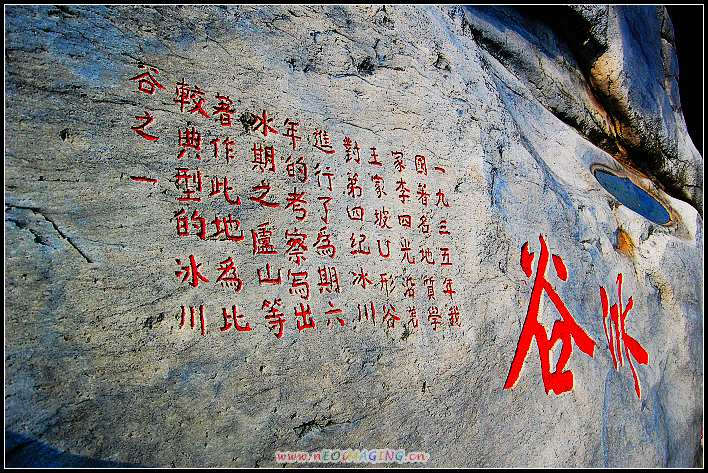 冰谷
一九三五年我
國著名地質學
家李四光沿着
王家坡U形谷
對第四纪冰川
進行了為期六
年的考察写出
冰期之廬山等
著作此地為比
較典型的冰川
谷之一
www.nEOiMAGING.cn